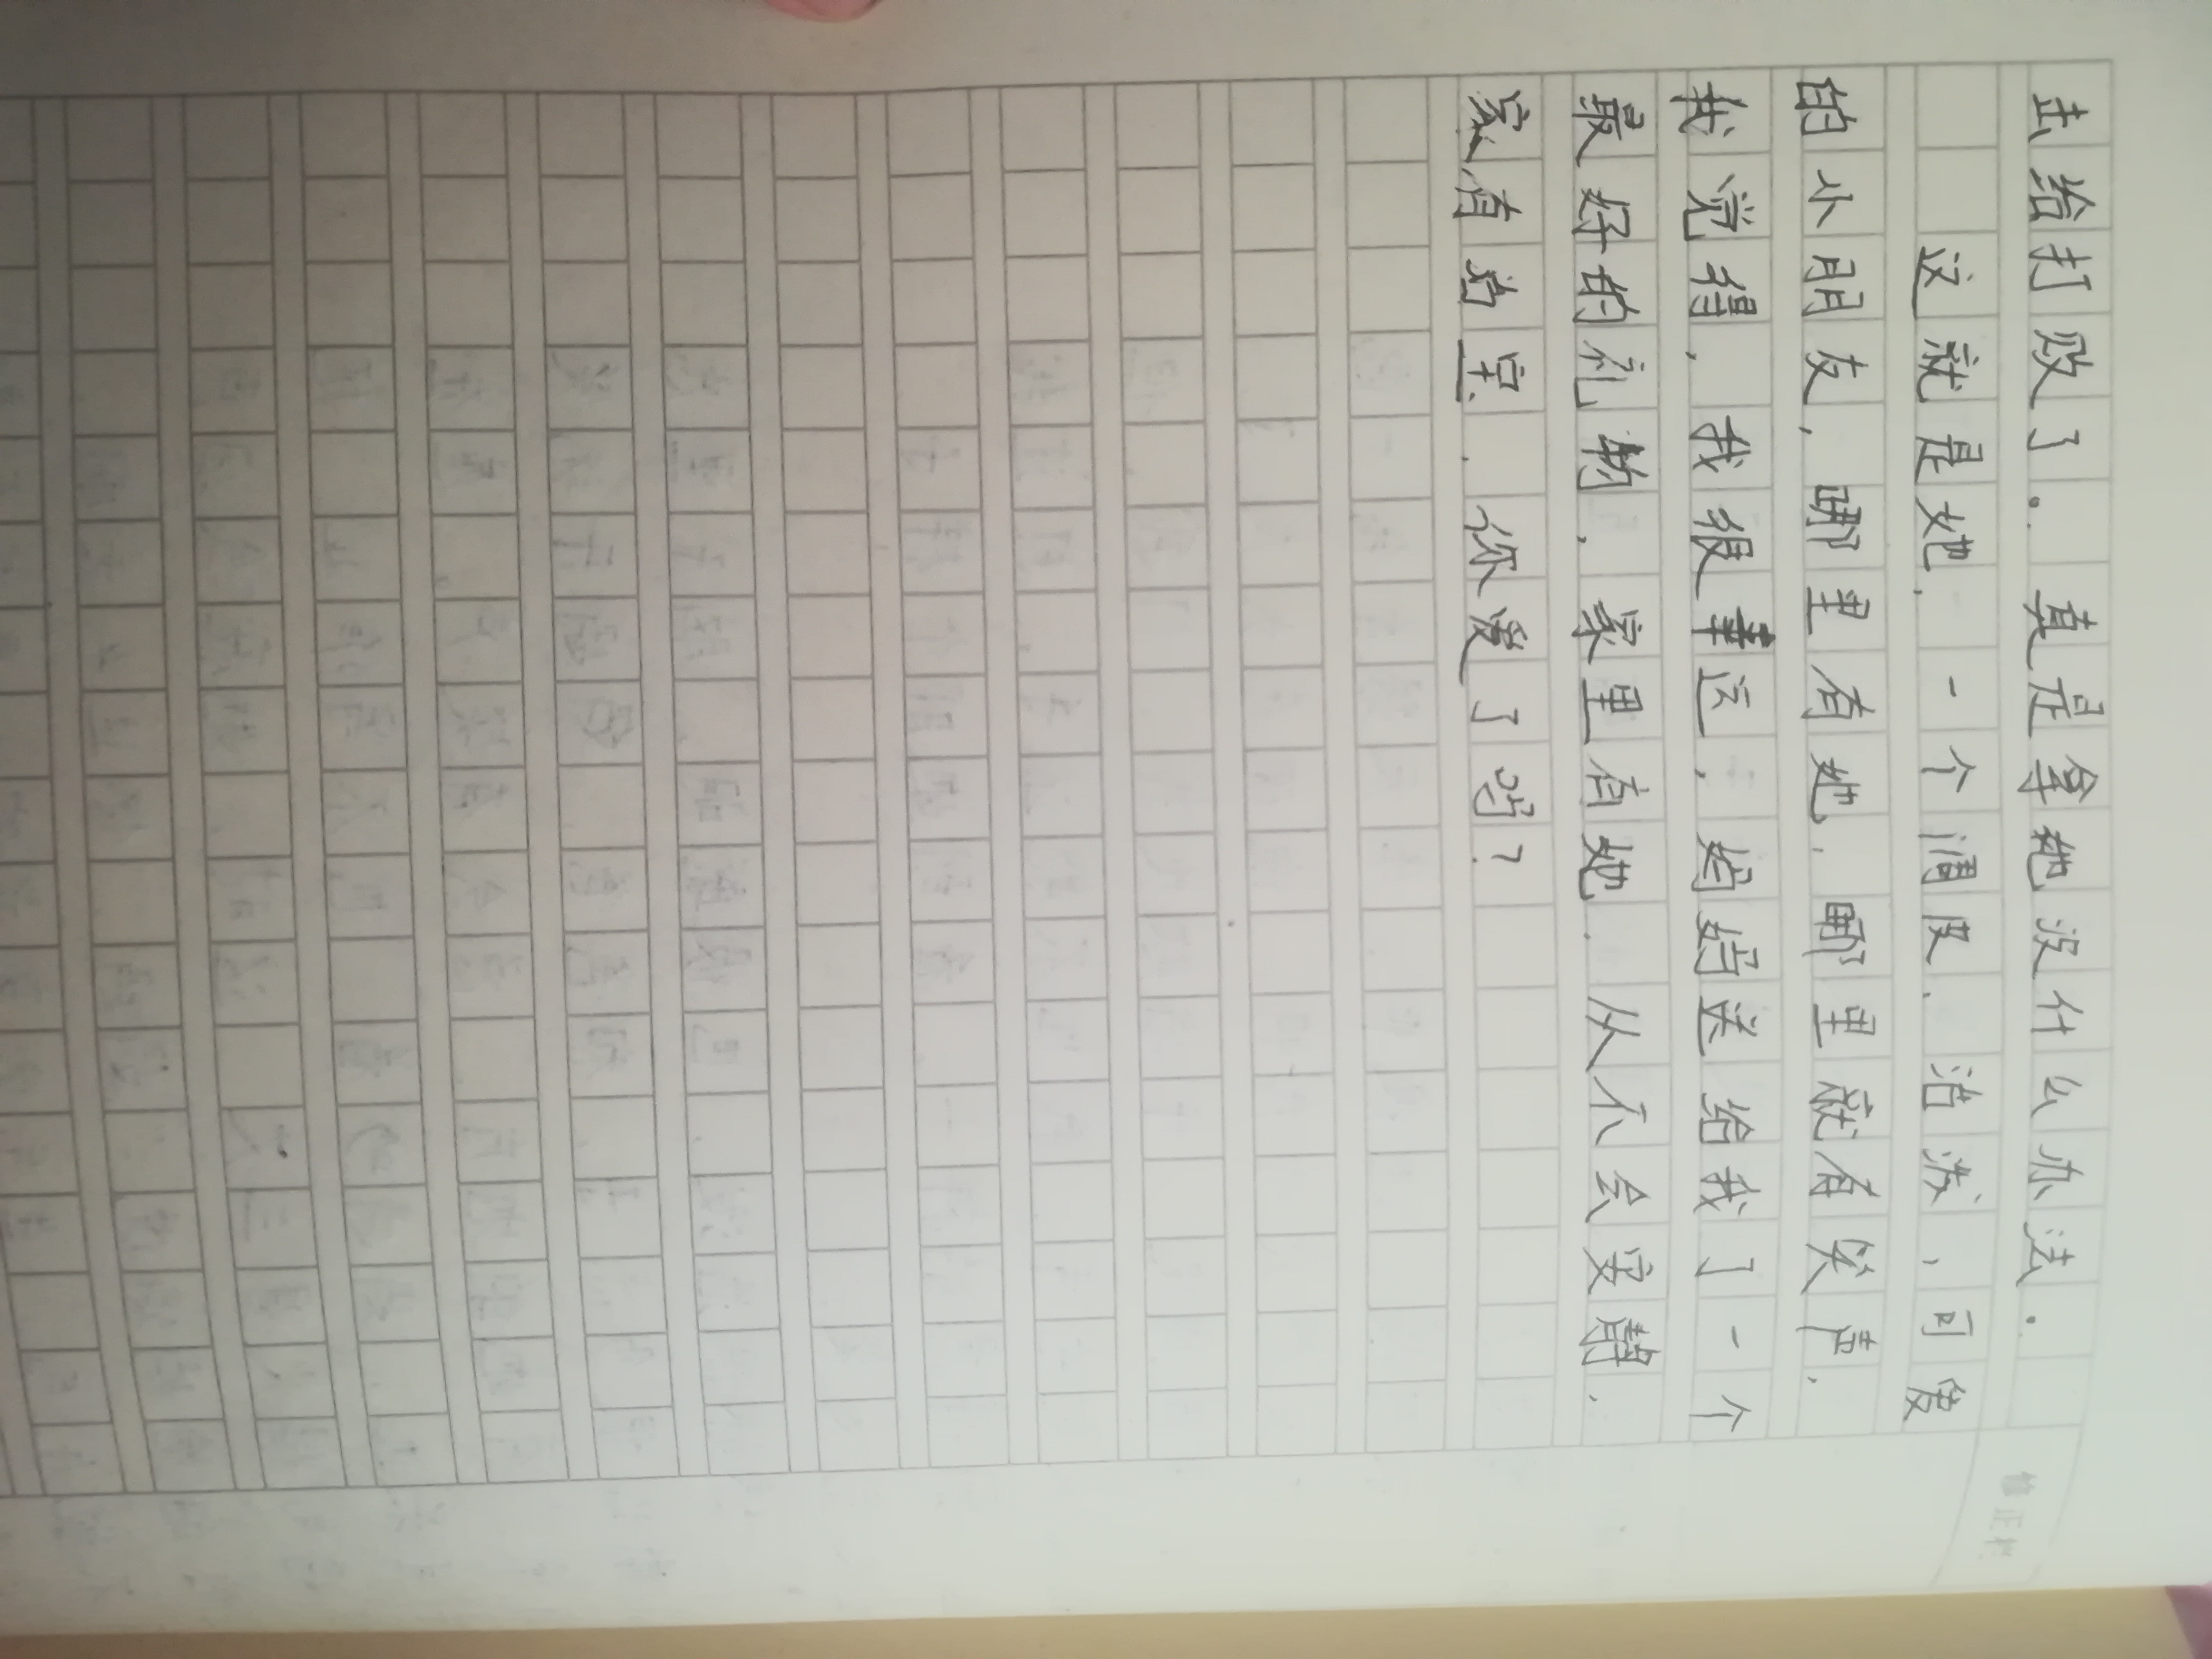 去给打败了。真是拿她没什么办法。
这就是她,一个调皧、活泼、可爱
的小朋友,哪里有她,哪里就有笑声。
我觉得,我很幸运,妈妈送给我了一个
最好的礼物,家里有她,从不会安静。
家有宝,你爱了吗?
修正栏